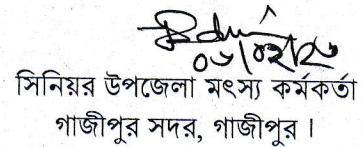 ০৬/০২/২৬
সিনিয়র উপজেলা মৎস্য কর্মকর্তা
গাজীপুর সদর, গাজীপুর।